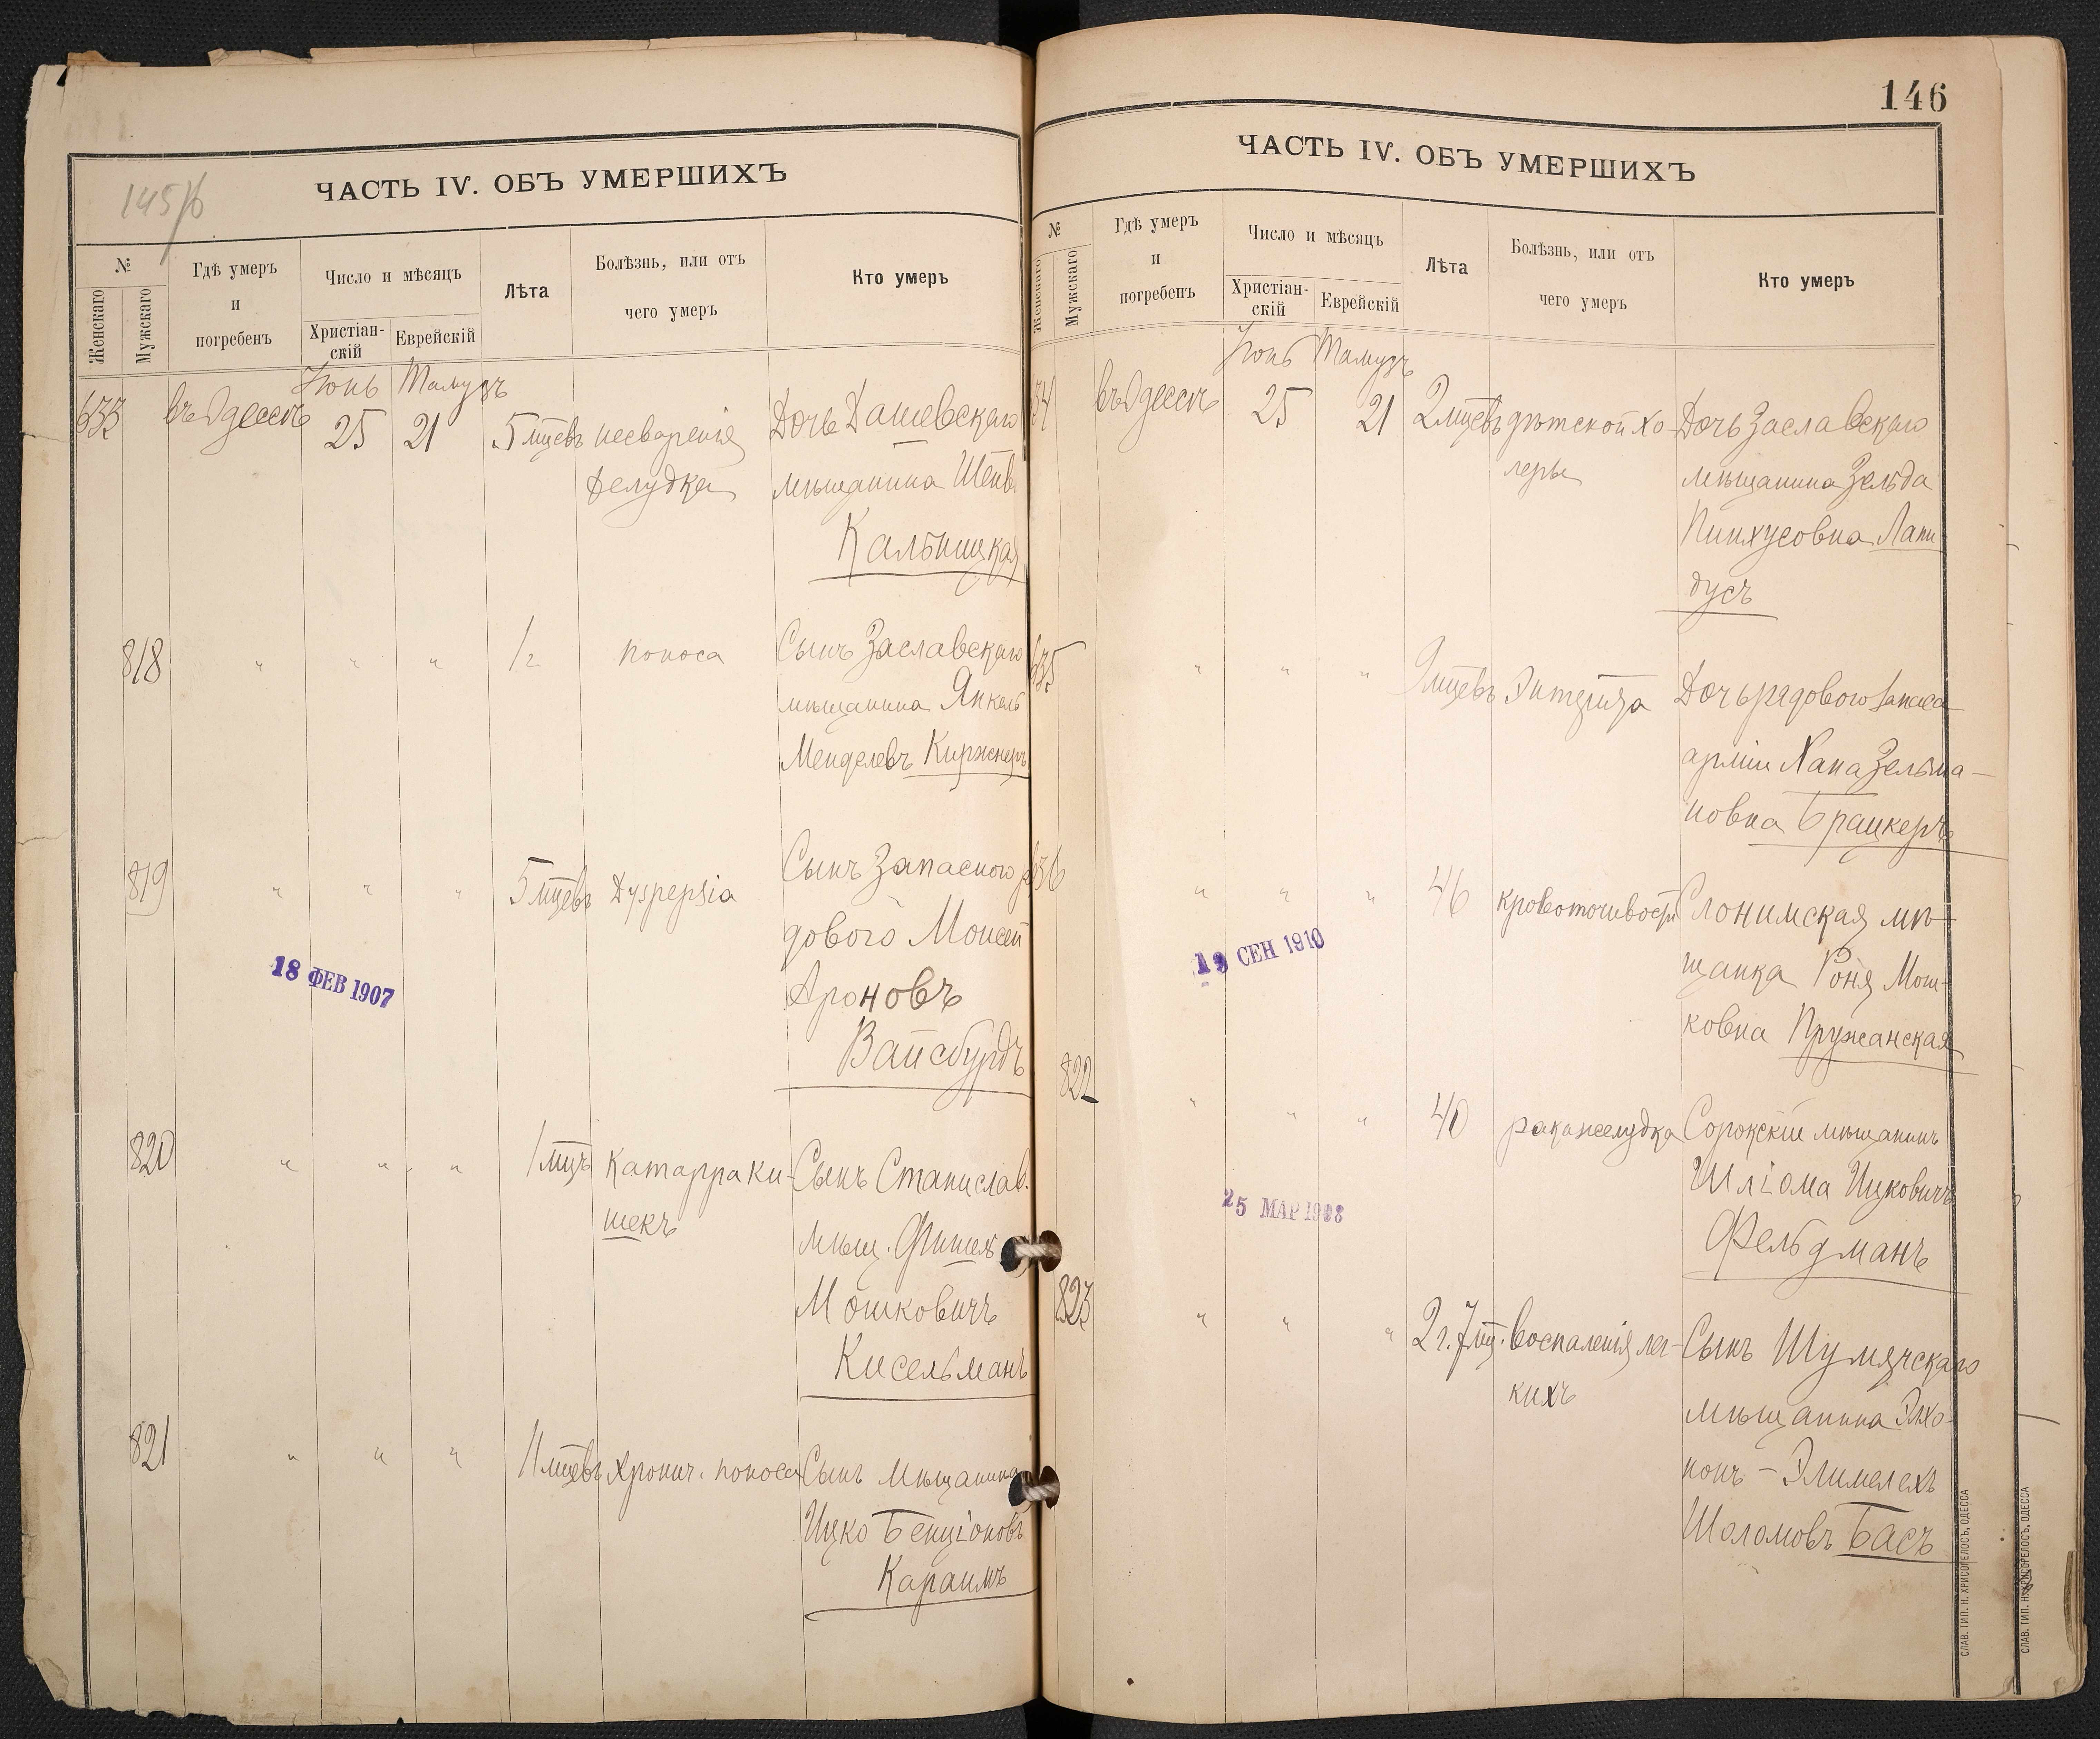 145/б
ЧАСТЬ IV. ОБЪ УМЕРШИХЪ
№
Женскаго
Мужскаго
Гдѣ умеръ
и
погребенъ
Число и мѣсяцъ
Христіан-
скій
Еврейскій
Лѣта
Болѣзнь, или отъ
чего умеръ
Кто умеръ
Іюнь Тамузъ
633 въ Одессѣ 25 21 5 мцевъ несваренія Дочь Дашевскаго
желудка мѣщанина
Кальницкая
818 " " " 1 г. поноса Сынъ Заславскаго
мѣщанина Янкель
Менделевъ Киржнеръ
819 " " " 5 мцевъ Dyspepsia Сынъ Запасного ря
дового Моисей
Ароновъ
Вайсбурдъ
18 ФЕВ 1907
820 " " " 1 мцъ Катарра ки- Сынъ Станислав.
шекъ мѣщ. Фишель
Мошковичъ
Кисельманъ
821 " " " 11 мцевъ Хронич. поноса Сынъ мѣщанина
Ицко Бенціоновъ
Караимъ
146
ЧАСТЬ IV. ОБЪ УМЕРШИХЪ
№
Женскаго
Мужскаго
Гдѣ умеръ
и
погребенъ
Число и мѣсяцъ
Христіан-
скій
Еврейскій
Лѣта
Болѣзнь, или отъ
чего умеръ
Кто умеръ
Іюнь Тамузъ
634 въ Одессѣ 25 21 2 мцевъ дѣтской хо- Дочь Заславскаго
леры мѣщанина Зельда
Пинхусовна Лапи
дусъ
635 " " " 9 мцевъ Энтерита Дочь рядового запаса
арміи Хана Зельма-
новна Брацкеръ
636 " " " 46 кровоточивости Слонимская мѣ-
щанка Роня Мош-
ковна Пружанская
19 СЕН 1910
822 " " " 40 рака желудка Сорокскій мѣщанинъ
Шліома Ицковичъ
Фельдманъ
25 МАР 1908
823 " " " 2 г. 7 мц. воспаленія лег- Сынъ Шумячскаго
кихъ мѣщанина Элхо-
нонъ - Элимелехъ
Шоломовъ Басъ
СЛАВ. ТИП. Н. ХРИСОГЕЛОСЪ, ОДЕССА
СЛАВ. ТИП. Н. ХРИСОГЕЛОСЪ, ОДЕССА